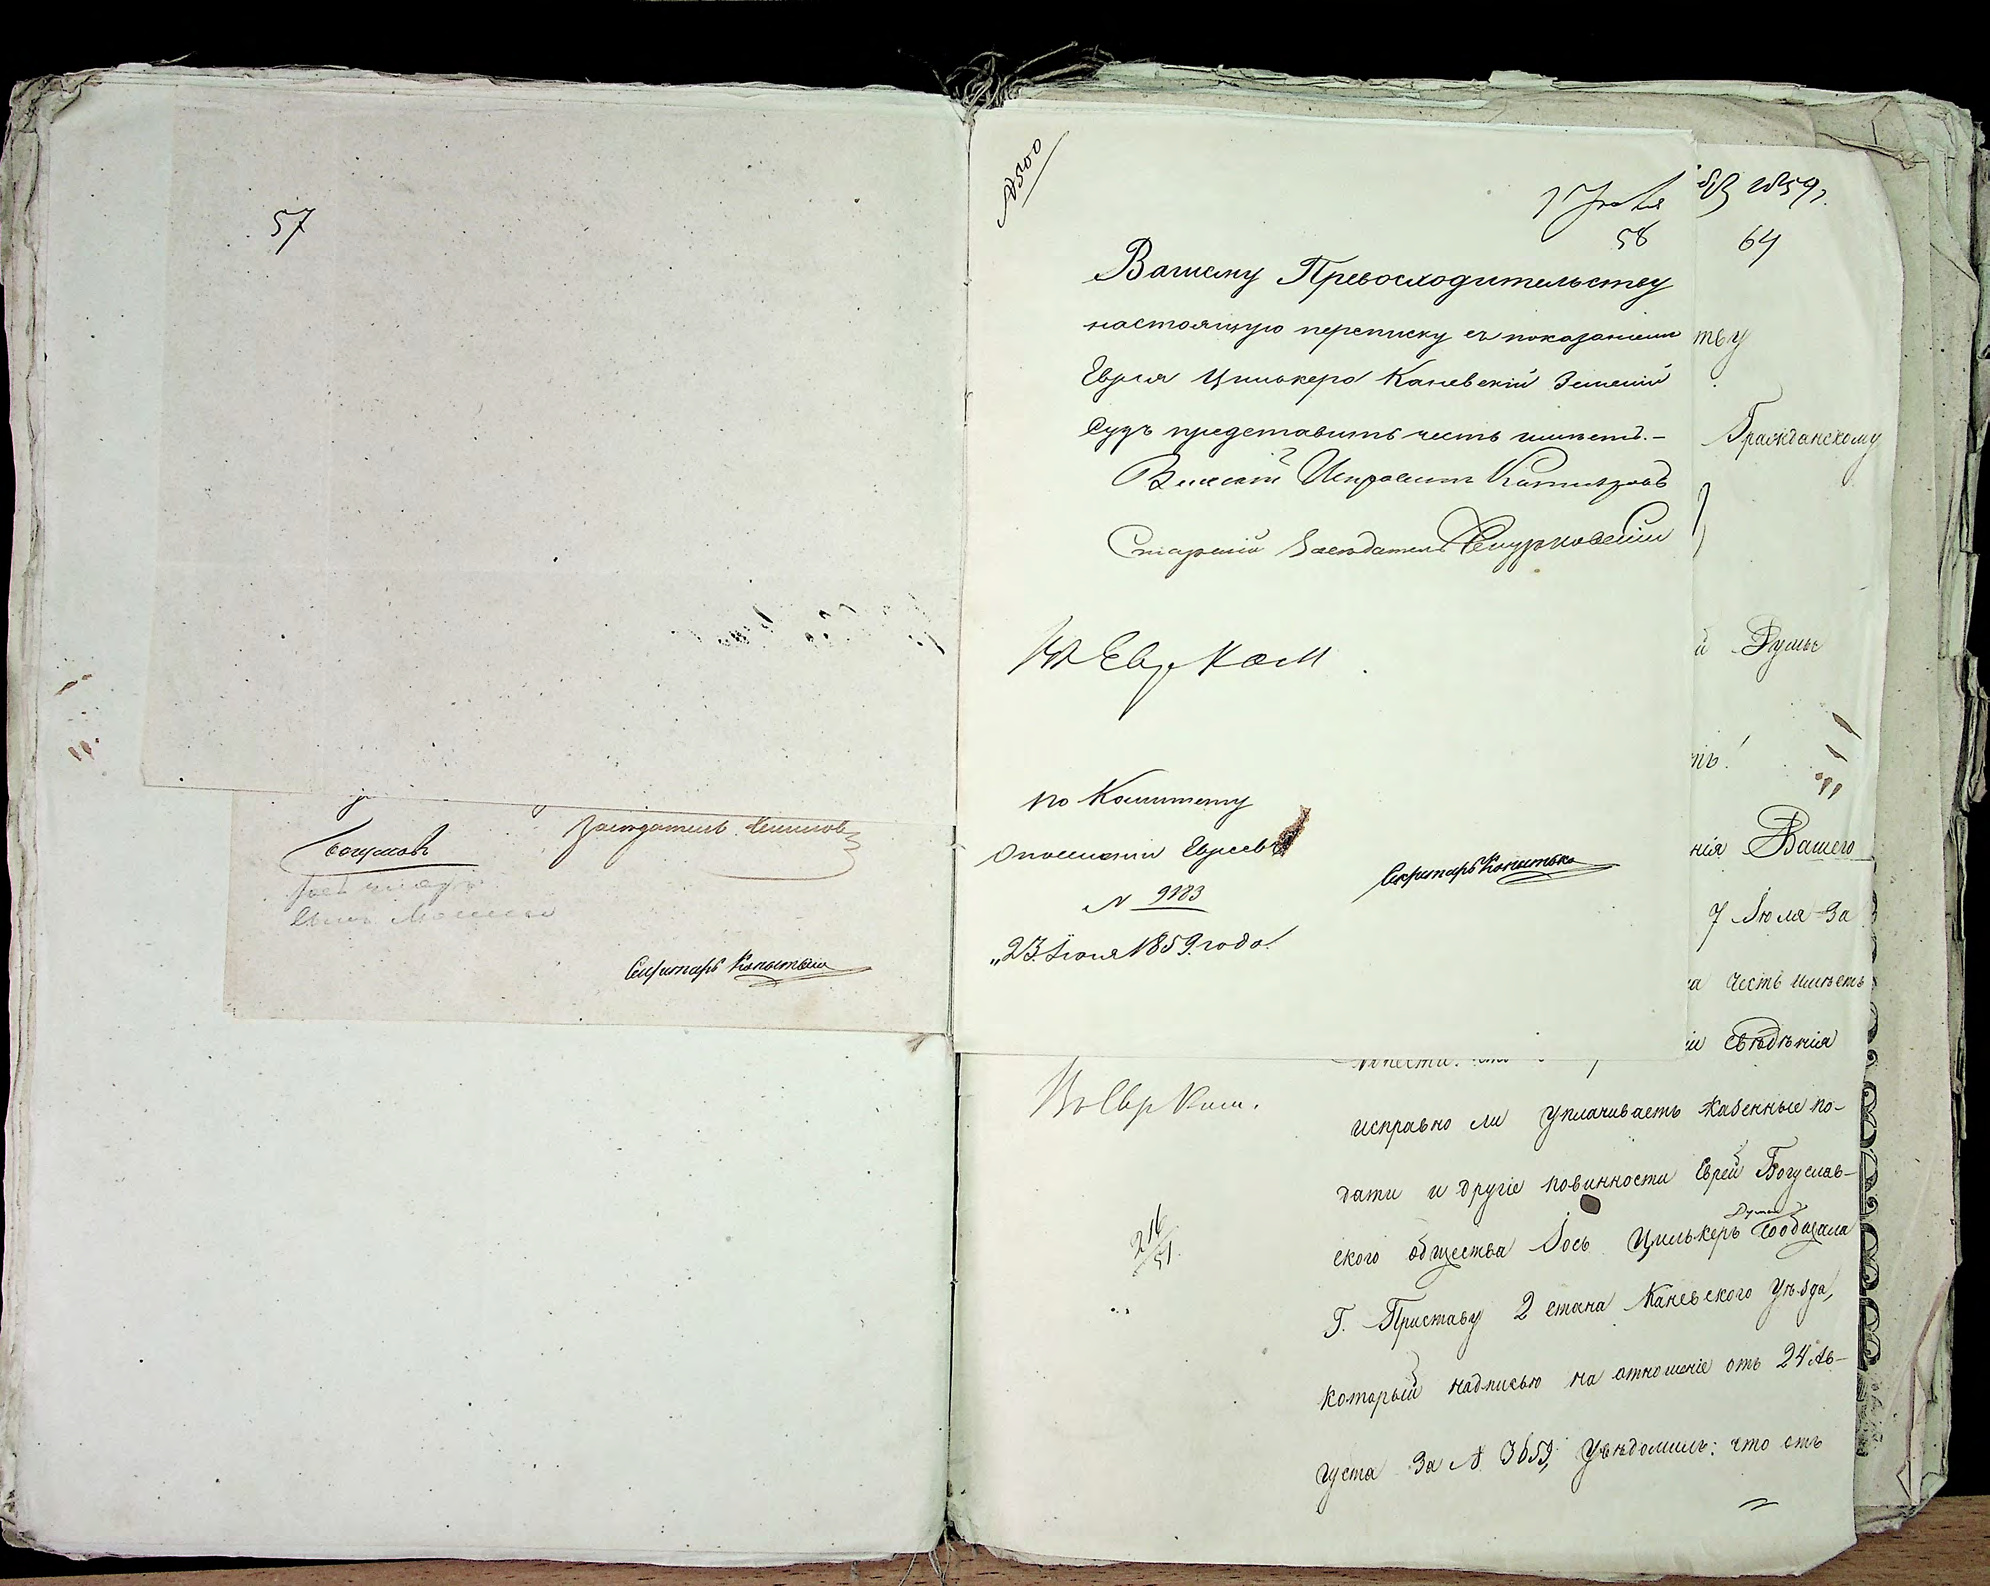 57
Засѣдатель
Секретарь
№ 500
58
Вашему Превосходительству
настоящую переписку съ показаніем
Еврея Цилькера Каневскій Земскій
Судъ представить честь имѣетъ.—
Земскій Исправникъ
Старшій Засѣдатель
По Комитету
О поселеніи Евреевъ
N 9183
„23" Іюля 1859. года.
Секретарь
1859 г.
64
тву
Гражданскому
й Думы
ть!
нія Вашего
7 Іюля за
а честь имѣетъ
ли свѣдѣнія
донести:
По Евр Ком.
исправно ли уплачиваетъ казенные по-
дати и другіе повинности Еврей Богуслав-
ского общества Іось Цилькеръ Дума сообщала
216
51
Г. Приставу 2 стана Каневского Уѣзда,
который надписью на отношеніе отъ 24 Ав-
густа за N 3659, Увѣдомилъ: что отъ